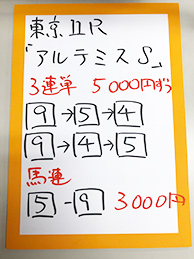 東京11R
「アルテミスS」
3連単 5000円ずつ
9→5→4
9→4→5
馬連
5-9 3000円